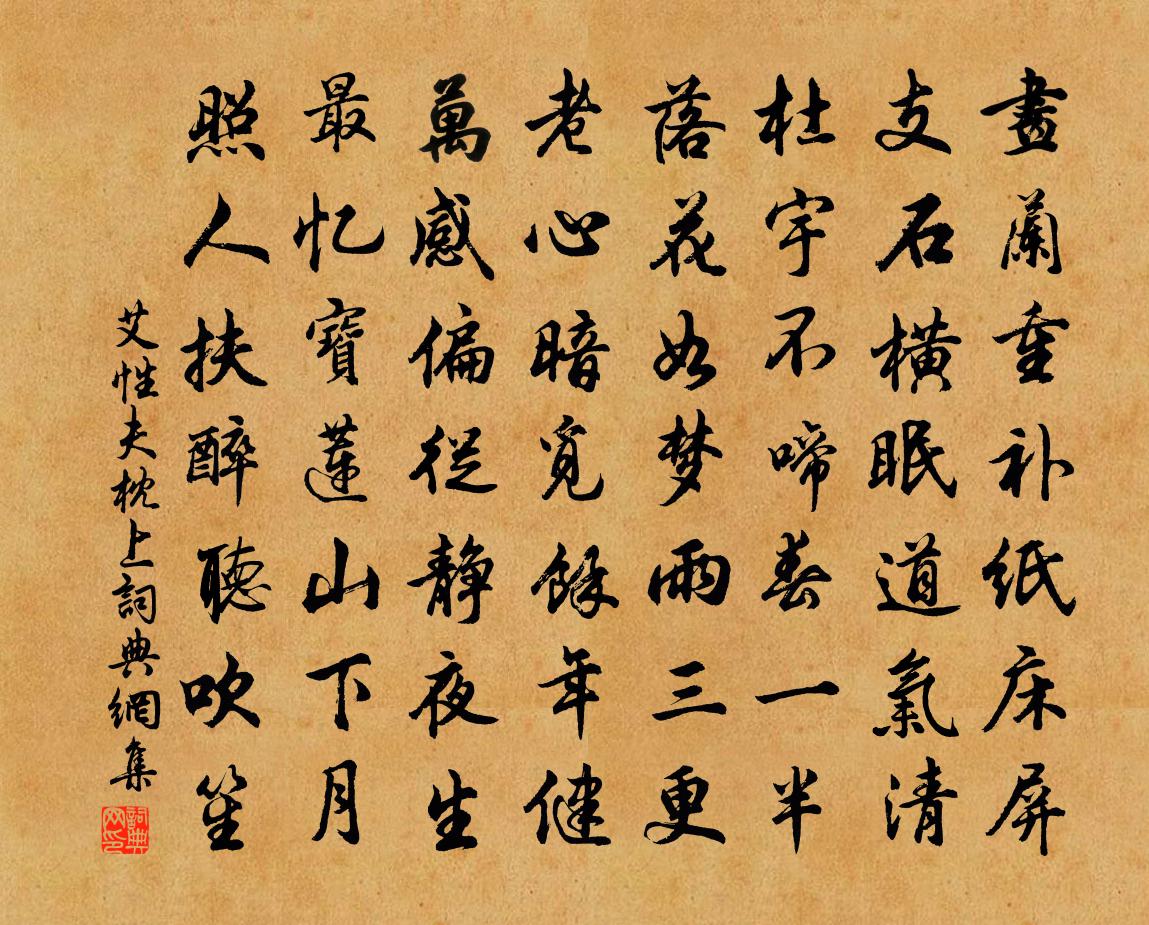 畫蘭重补紙床屏
支石橫眠道氣清
杜宇不啼春一半
落花如梦雨三更
老心暗覓餘年健
萬感偏從靜夜生
最忆寶蓮山下月
照人扶醉聽吹笙
艾性夫枕上詞典網集
詞典网印